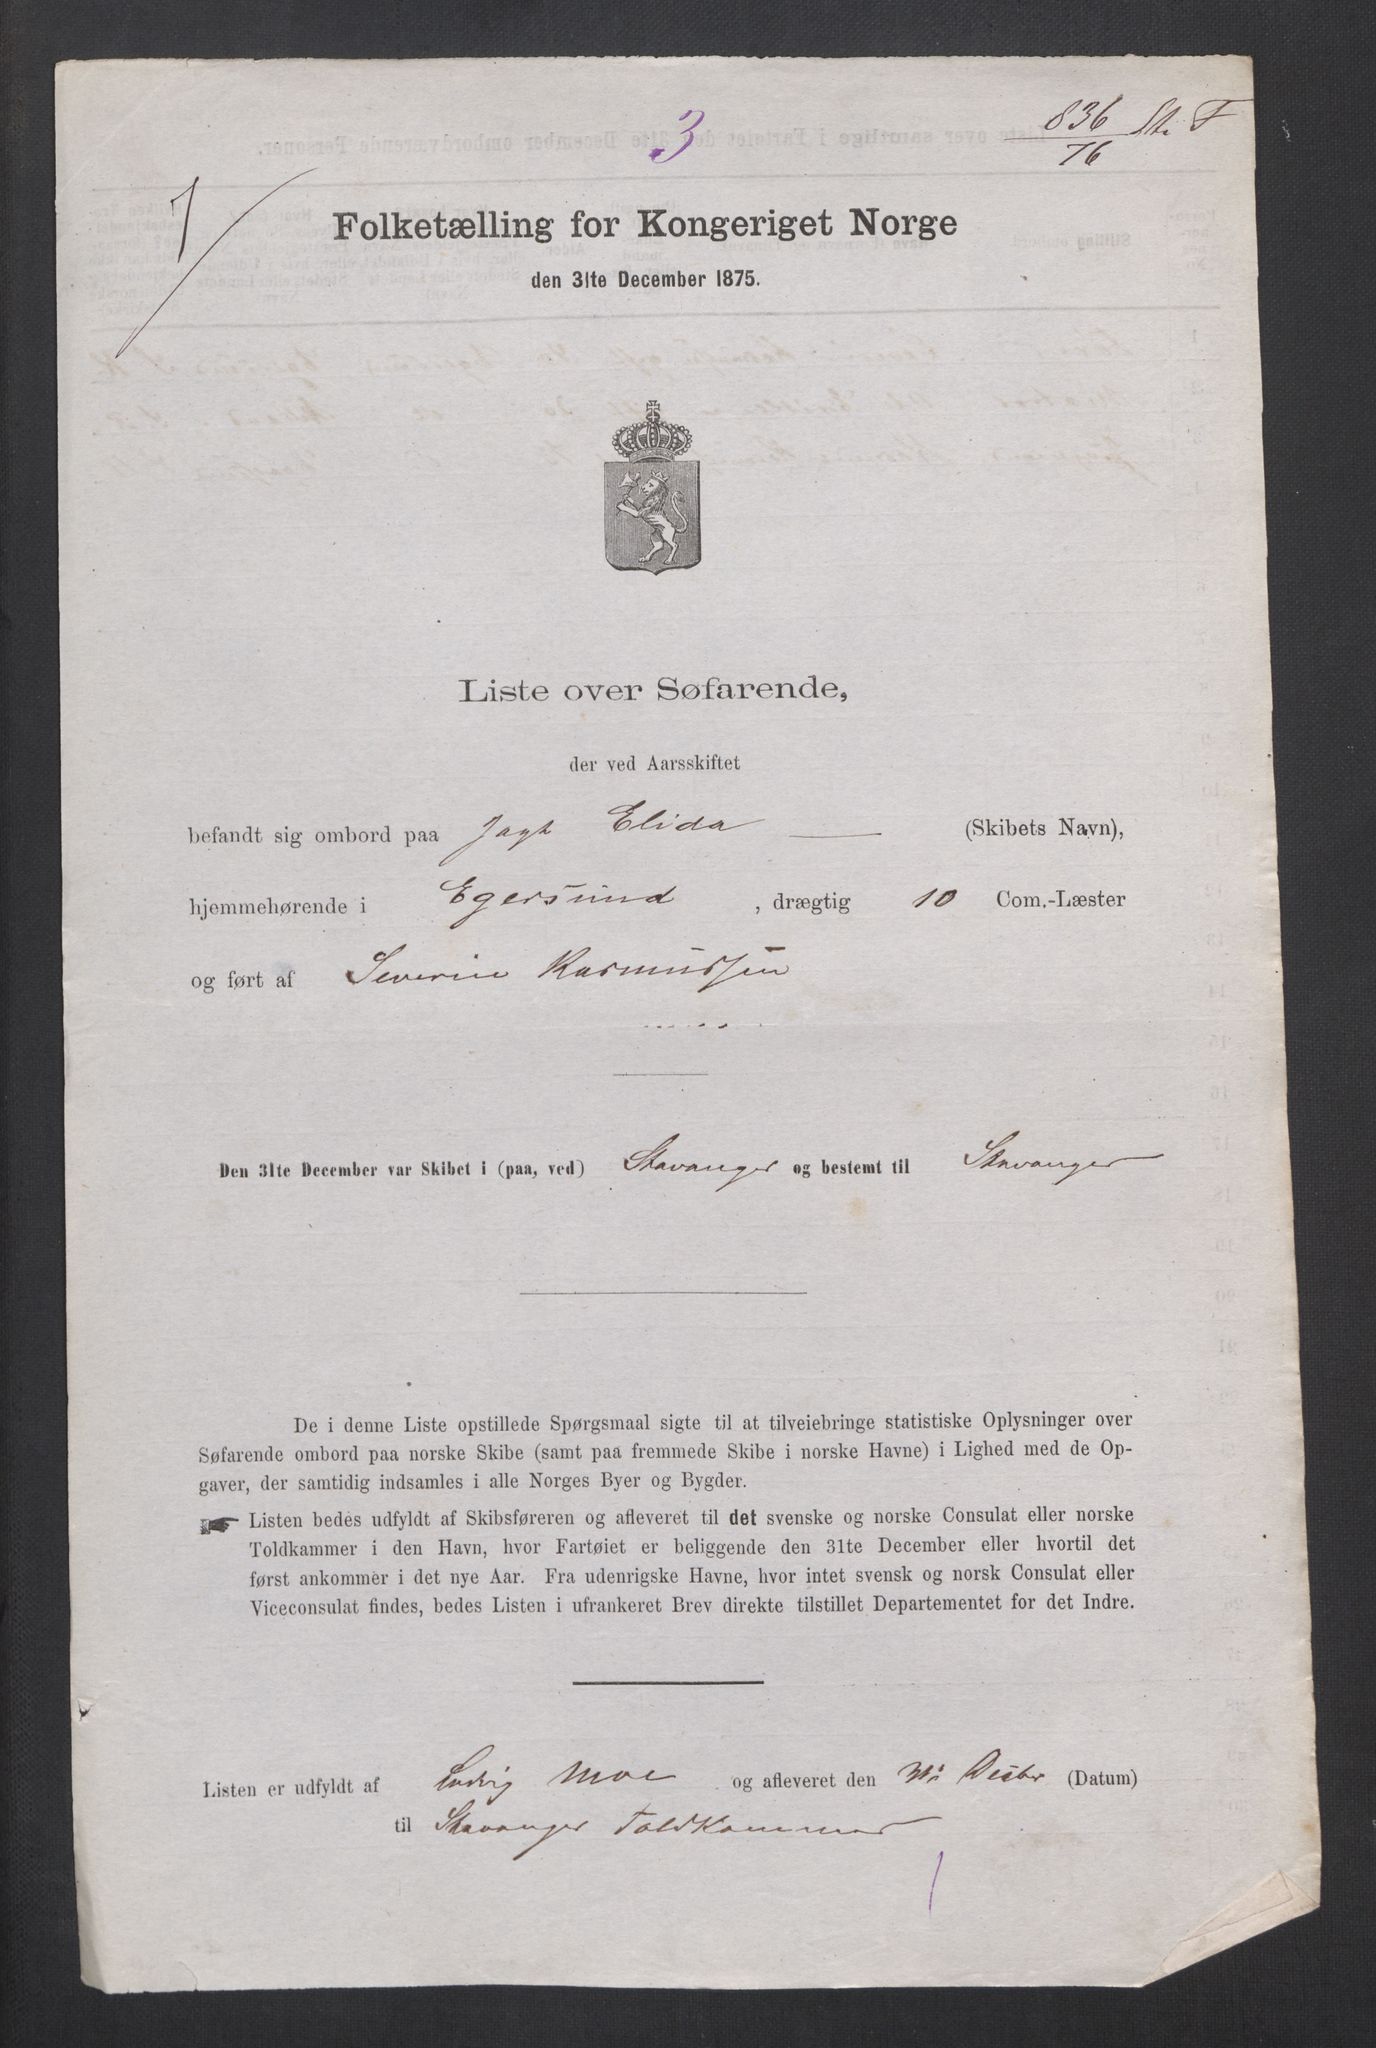 3
836
76
Folketælling for Kongeriget Norge
den 31te December 1875.
Liste over Søfarende,
der ved Aarsskiftet
befandt sig ombord paa Jagt Elida (Skibets Navn),
hjemmehørende i Egersund, drægtig 10 Com.-Læster
og ført af Severin Rasmussen
Den 31te December var Skibet i (paa, ved) Stavanger og bestemt til Stavanger
De i denne Liste opstillede Spørgsmaal sigte til at tilveiebringe statistiske Oplysninger over
Søfarende ombord paa norske Skibe (samt paa fremmede Skibe i norske Havne) i Lighed med de Op-
gaver, der samtidig indsamles i alle Norges Byer og Bygder.
☛ Listen bedes udfyldt af Skibsføreren og afleveret til det svenske og norske Consulat eller norske
Toldkammer i den Havn, hvor Fartøiet er beliggende den 31te December eller hvortil det
først ankommer i det nye Aar. Fra udenrigske Havne, hvor intet svensk og norsk Consulat eller
Viceconsulat findes, bedes Listen i ufrankeret Brev direkte tilstillet Departementet for det Indre.
Listen er udfyldt af Ludvig Moe og afleveret den Decbr (Datum)
til Stavanger Toldkammer